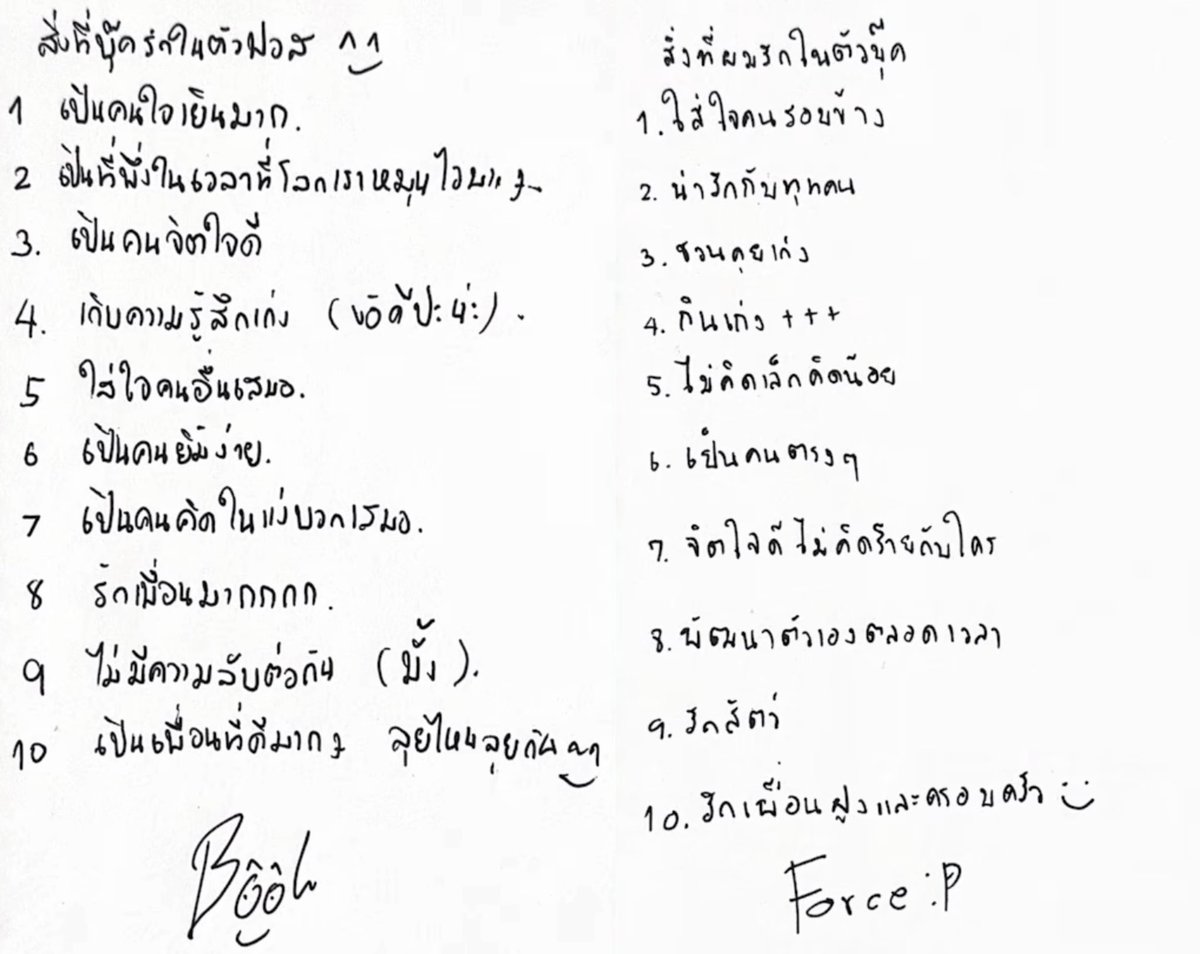 สิ่งที่บุ๊ครักในตัวฟอส ^^
1 เป็นคนใจเย็นมาก.
2 เป็นที่พึ่งในเวลาที่โลกเราหมุนไวมากๆ
3. เป็นคนจิตใจดี
4. เก็บความรู้สึกเก่ง (ข้อดีปะน่ะ).
5 ใส่ใจคนอื่นเสมอ.
6 เป็นคนยิ้มง่าย.
7 เป็นคนคิดในแง่บวกเสมอ.
8 รักเพื่อนมากกกก.
9 ไม่มีความลับต่อกัน (มั้ง).
10 เป็นเพื่อนที่ดีมากๆ ลุยไหนลุยกัน ^^
Book
สิ่งที่ผมรักในตัวบุ๊ค
1. ใส่ใจคนรอบข้าง
2. น่ารักกับทุกคน
3. ชวนคุยเก่ง
4. กินเก่ง +++
5. ไม่คิดเล็กคิดน้อย
6. เป็นคนตรงๆ
7. จิตใจดี ไม่คิดร้ายกับใคร
8. พัฒนาตัวเองตลอดเวลา
9. รักสัตว์
10. รักเพื่อนฝูงและครอบครัว :)
Force :P